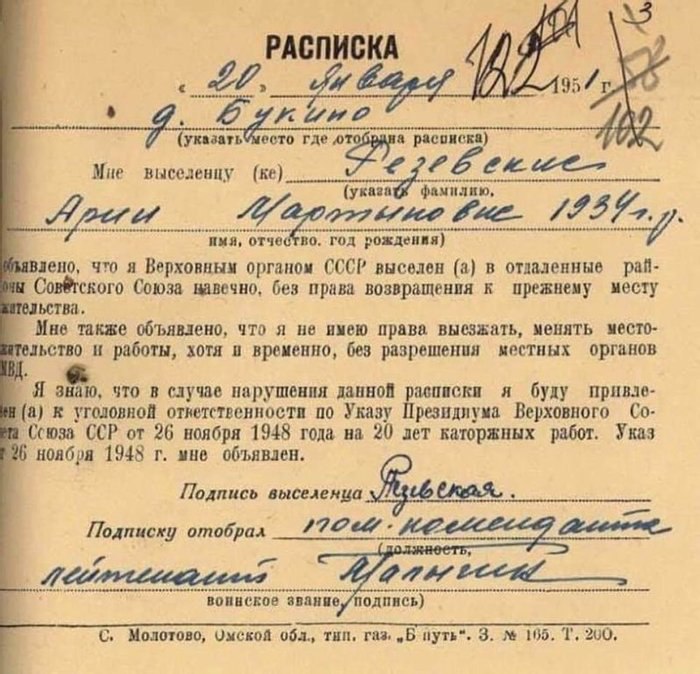 РАСПИСКА
13
„20„ января 1951 г.
122
102
д. Букино
(указать место где отобрана расписка)
Мне выселенцу (ке) Резевские
(указать фамилию,
Арии Мартыновис 1934 г.р.
имя, отчество. год рождения)
объявлено, что я Верховным органом СССР выселен (а) в отдаленные рай-
оны Советского Союза навечно, без права возвращения к прежнему месту
жительства.
Мне также объявлено, что я не имею права выезжать, менять место-
жительство и работы, хотя и временно, без разрешения местных органов
МВД.
Я знаю, что в случае нарушения данной расписки я буду привле-
ен (а) к уголовной ответственности по Указу Президиума Верховного Со-
ета Союза ССР от 26 ноября 1948 года на 20 лет каторжных работ. Указ
т 26 ноября 1948 г. мне объявлен.
Подпись выселенца Резевская.
Подписку отобрал пом. коменданта
(должность,
лейтенант Малыгин
воинское звание, подпись)
С. Молотово, Омской обл., тип. газ. „Б путь". З. № 165. Т. 200.